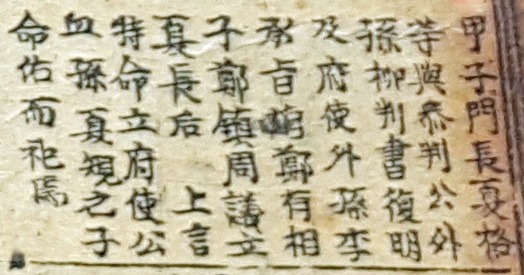 甲子門長夏格
等與參判公外
孫柳判書復明
及府使外孫李
承旨 鄭有相
子鄭鎭周議立
夏長后 上言
特命立府使公
血孫夏規之子
命佑而祀焉